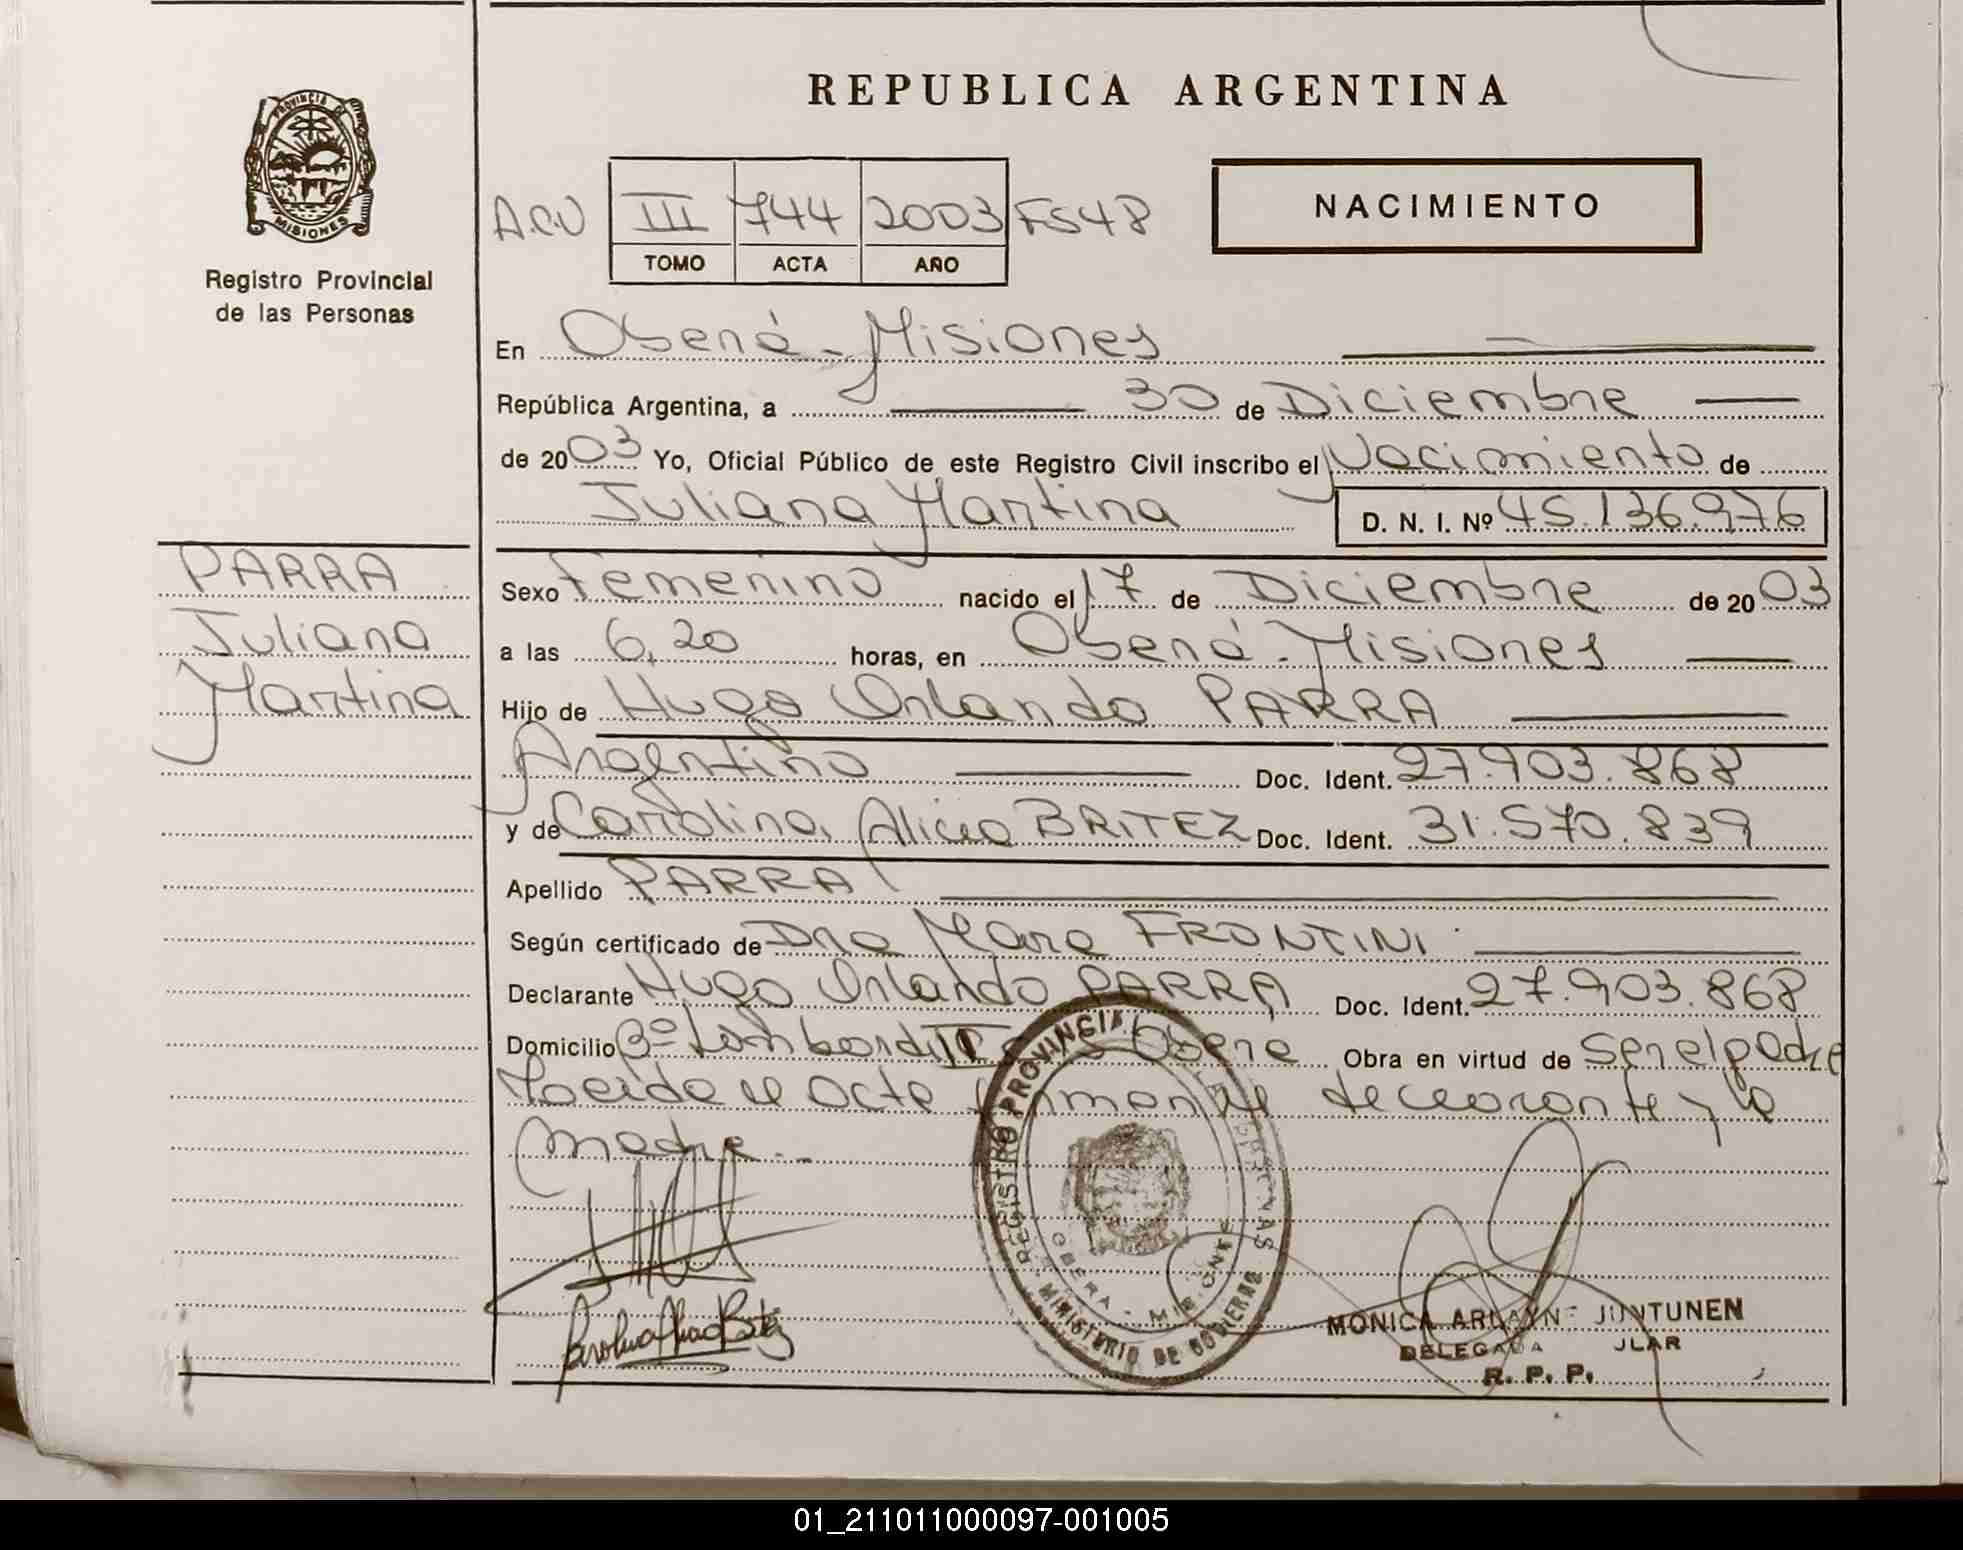 REPUBLICA ARGENTINA
PROVINCIA DE
MISIONES
Registro Provincial
de las Personas
A.C.U III 744 2003 FS48
TOMO ACTA AÑO
NACIMIENTO
En Oberá - Misiones
República Argentina, a 30 de Diciembre
de 2003 Yo, Oficial Público de este Registro Civil inscribo el Nacimiento de
Juliana Martina D. N. I. Nº 45.136.976
PARRA
Juliana
Martina
Sexo Femenino nacido el 17 de Diciembre de 2003
a las 6,20 horas, en Oberá - Misiones
Hijo de Hugo Orlando PARRA
Argentino Doc. Ident. 27.903.868
y de Carolina Alicia BRITEZ Doc. Ident. 31.570.839
Apellido PARRA
Según certificado de Dra Mara FRONTINI
Declarante Hugo Orlando PARRA Doc. Ident. 27.903.868
Domicilio Bº Obera Obra en virtud de Ser el padre
el acta declarante y la
madre.-
REGISTRO PROVINCIAL DE LAS PERSONAS
OBERA - MISIONES
MINISTERIO DE GOBIERNO
MONICA ARLAYNE JUNTUNEN
DELEGADA
R. P. P.
01_211011000097-001005